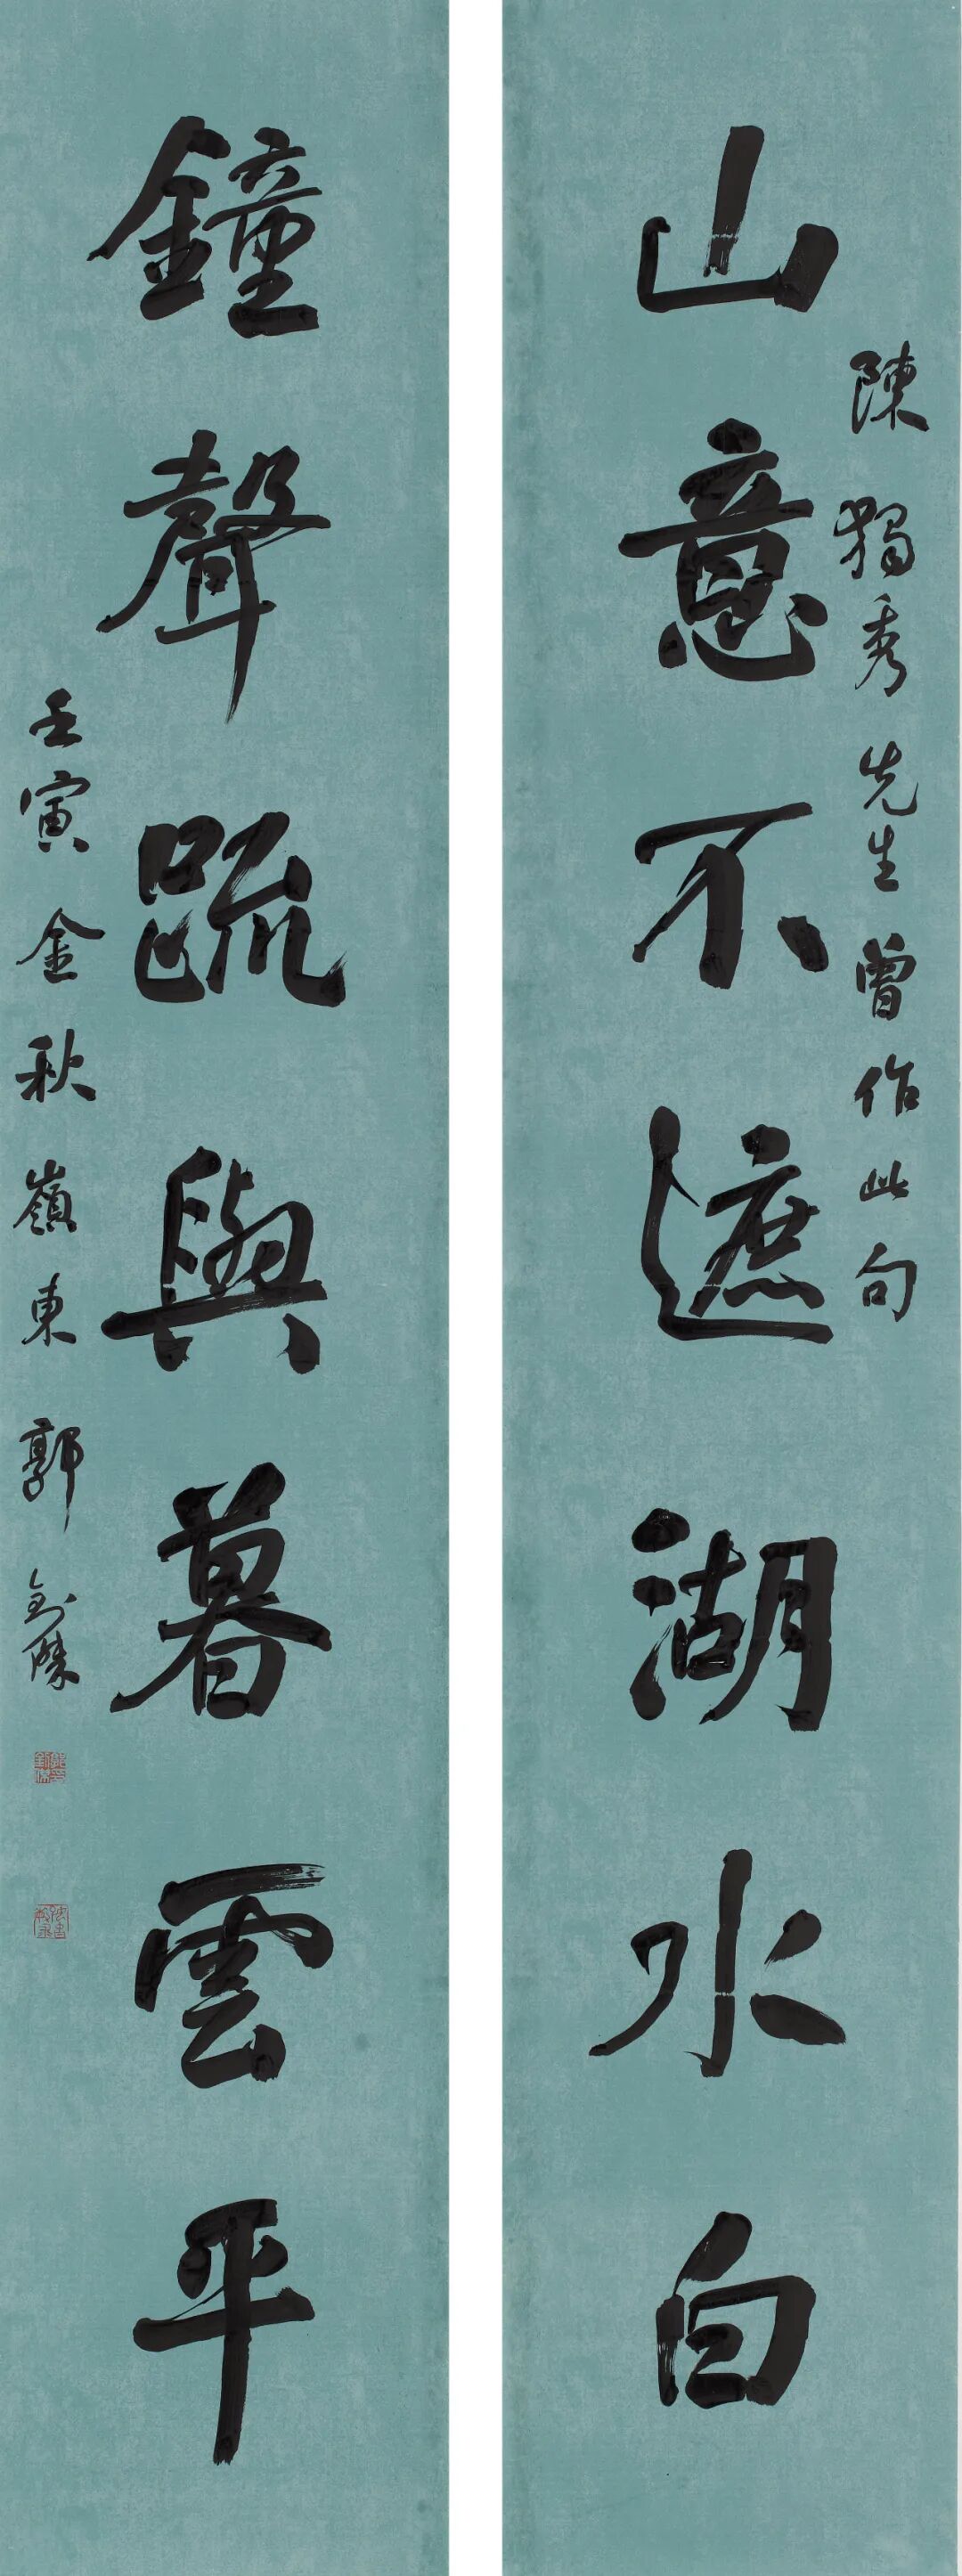 陳獨秀先生曾作此句
山意不遮湖水白
鐘聲疏與暮雲平
壬寅金秋嶺東郭